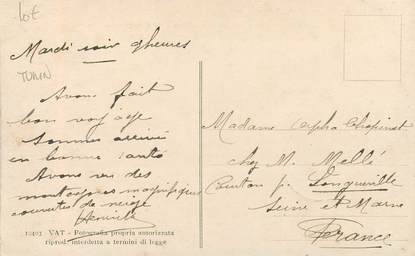 lot
Mardi soir 9 heures
TURIN
Avons fait
bon voyage
Sommes arrivé
en bonne santé
Avons vu des
montagnes magnifiques
couvertes de neige
Madame
chez M. Mellé
Longueville
Seine et Marne
France
12403 VAT - Fotografia propria autorizzata
riprod. interdetta a termini di legge